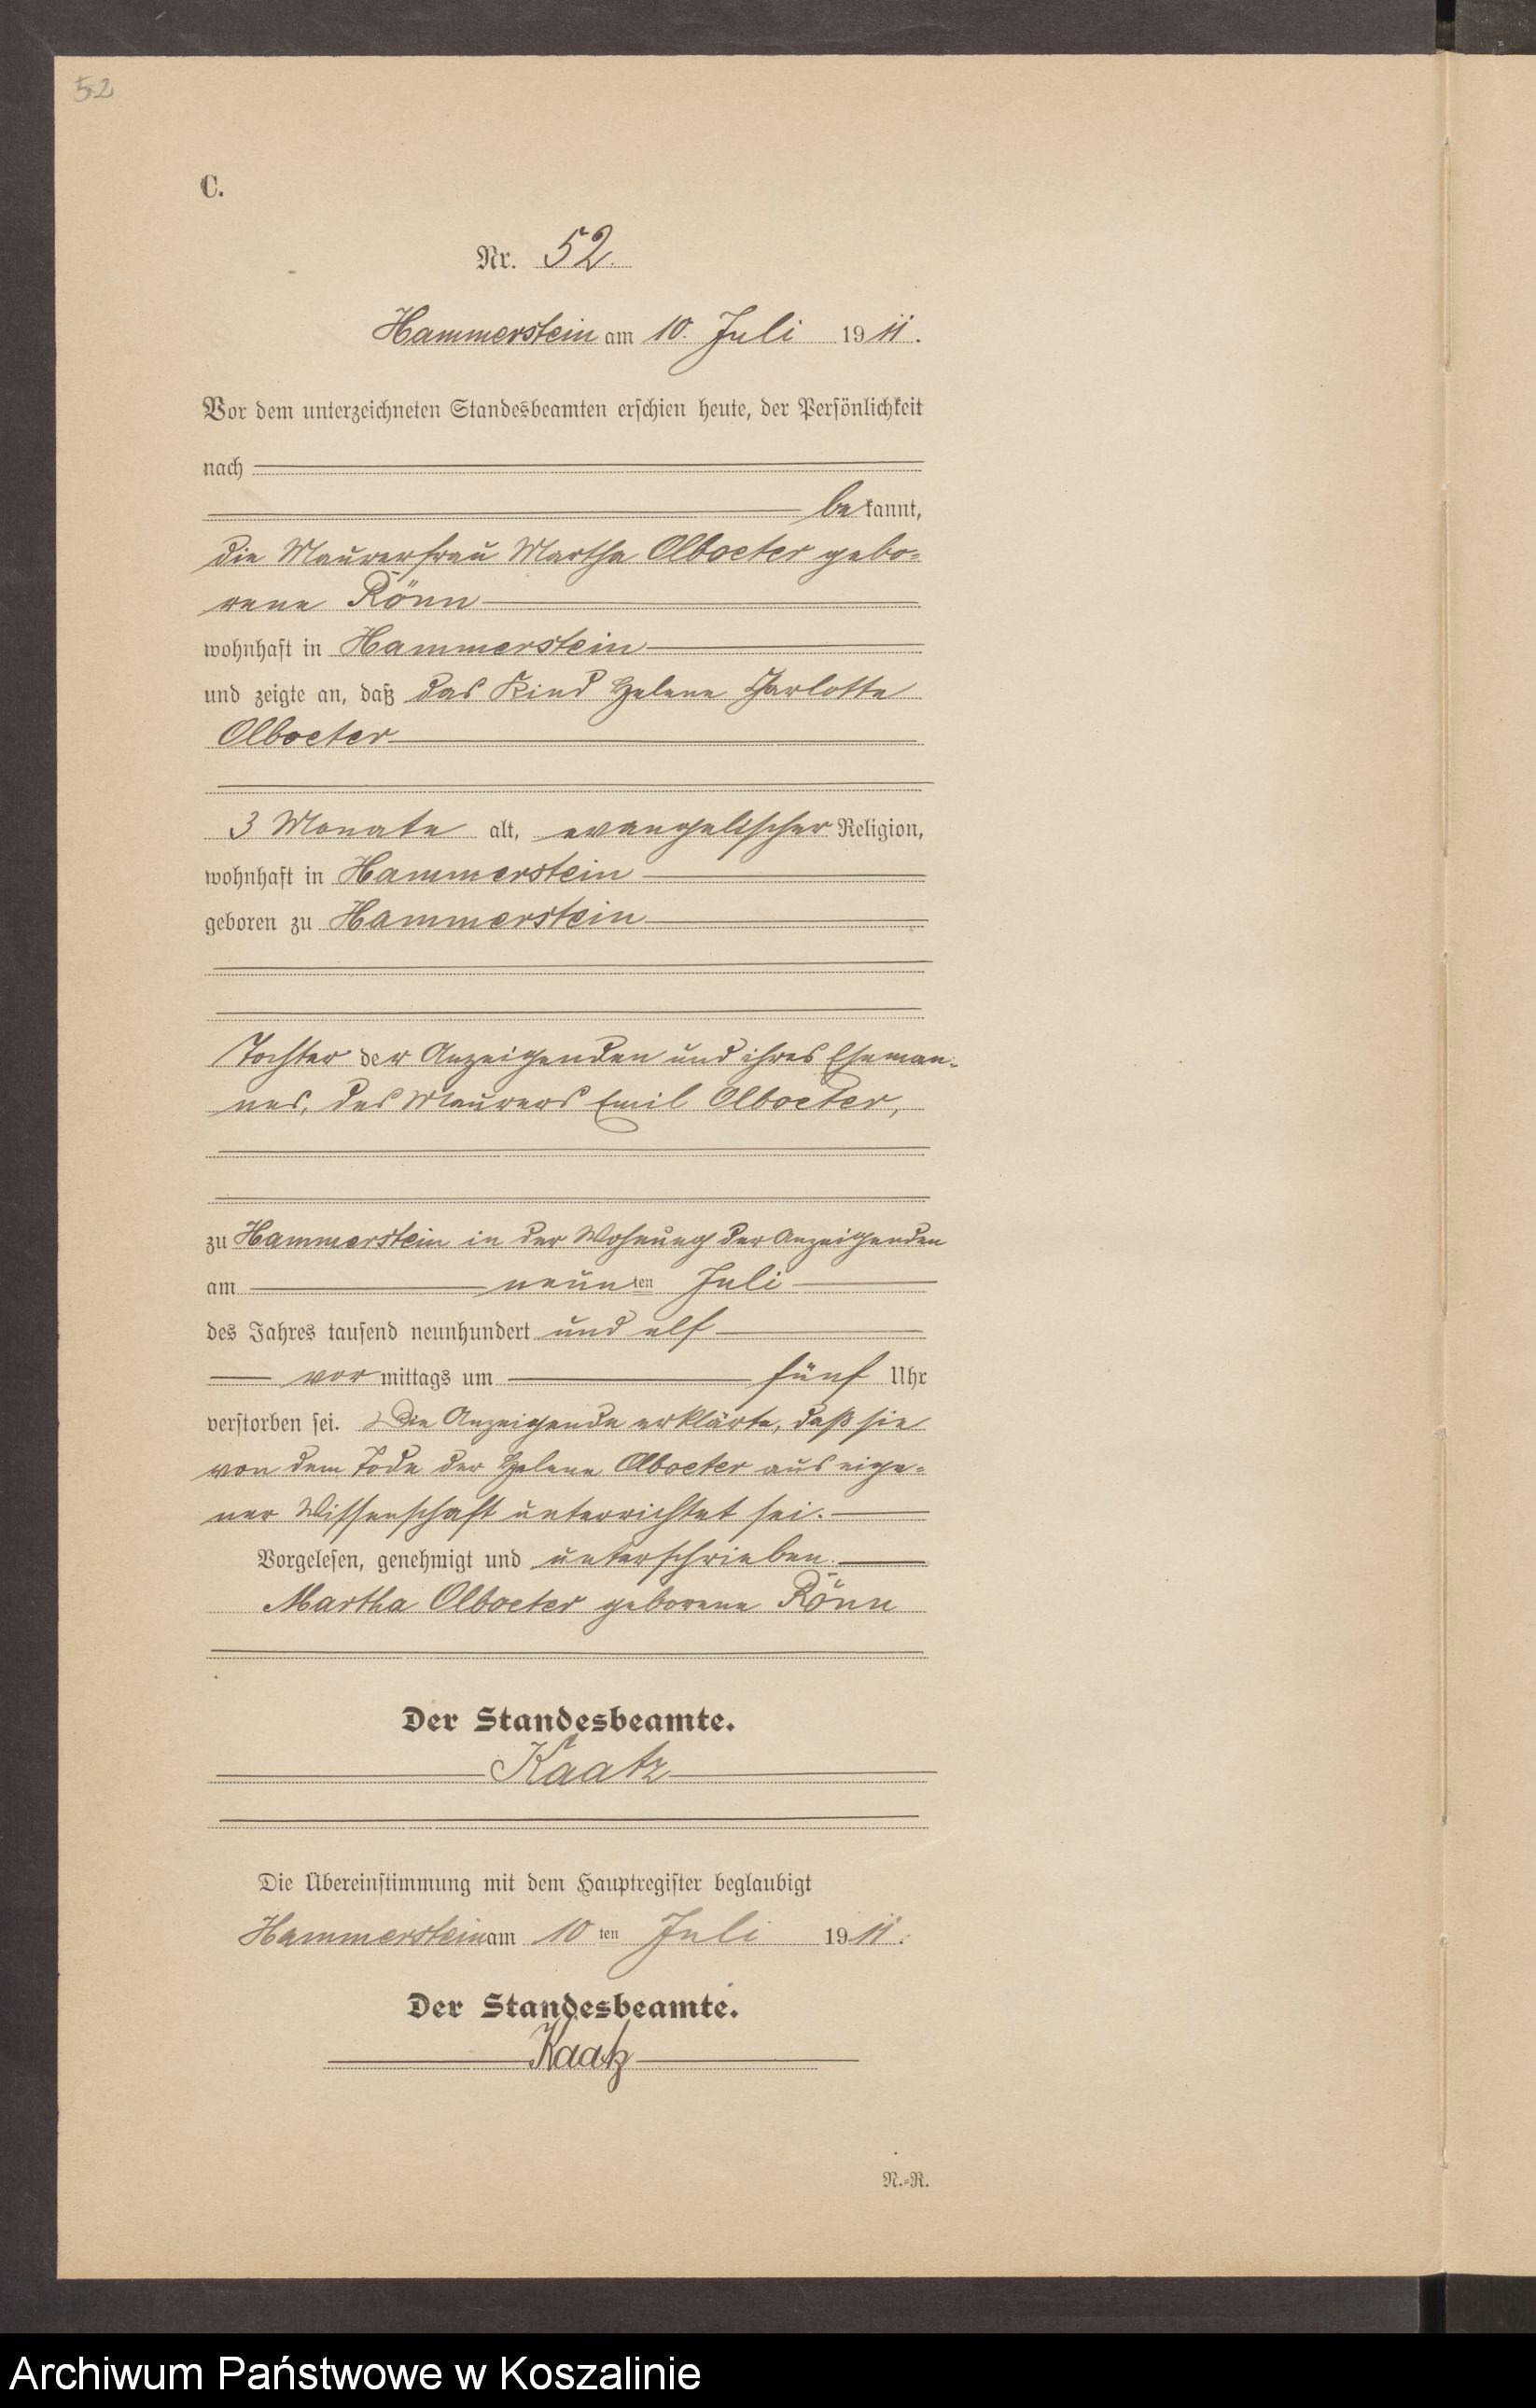 52
C.
Nr. 52.
Hammerstein am 10. Juli 1911.
Vor dem unterzeichneten Standesbeamten erschien heute, der Persönlichkeit
nach
bekannt,
die Maurerfrau Martha Olboeter gebo-
rene Rönn
wohnhaft in Hammerstein
und zeigte an, daß das Kind Helene Charlotte
Olboeter
3 Monate alt, evangelischer Religion,
wohnhaft in Hammerstein
geboren zu Hammerstein
Tochter der Anzeigenden und ihres Eheman-
nes, des Maurers Emil Olboeter,
zu Hammerstein in der Wohnung der Anzeigenden
am neunten Juli
des Jahres tausend neunhundert und elf
vor mittags um fünf Uhr
verstorben sei. Die Anzeigende erklärte, daß sie
von dem Tode der Helene Olboeter aus eige-
ner Wissenschaft unterrichtet sei.
Vorgelesen, genehmigt und unterschrieben.
Martha Olboeter geborene Rönn
Der Standesbeamte.
Kaatz
Die Übereinstimmung mit dem Hauptregister beglaubigt
Hammerstein am 10ten Juli 1911.
Der Standesbeamte.
Kaatz
N.-R.
Archiwum Państwowe w Koszalinie